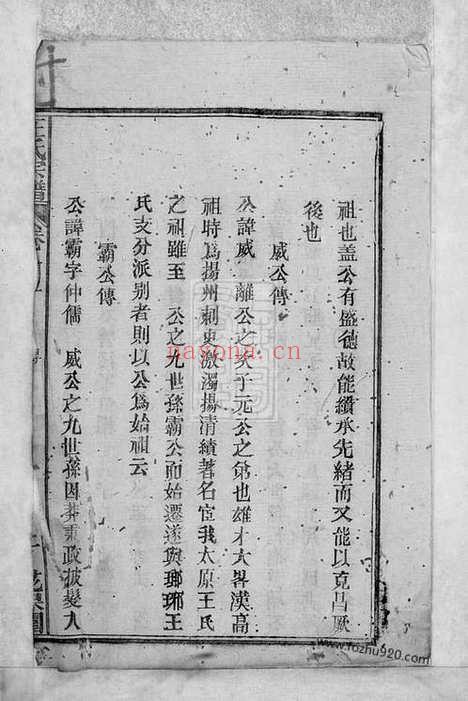 祖也蓋公有盛德故能纘承先緒而又能以克昌厥
後也
威公傳
公諱威 離公之次子元公之弟也雄才大畧漢高
祖時爲揚州刺吏激濁揚清績著名宦我太原王氏
之祖雖王 公之九世孫霸公而始遷遂與瑯琊王
氏支分派别者則以公爲始祖云
霸公傳
公諱霸字仲儒 威公之九世孫因莽秉政披髮入
王氏宗譜
nayona.cn
www.fozhu920.com